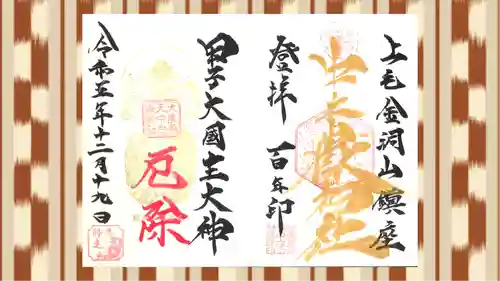 上毛金洞山鎮座
中之嶽神社
登拝 百年印
甲子大國主大神
厄除
令和五年十二月十九日